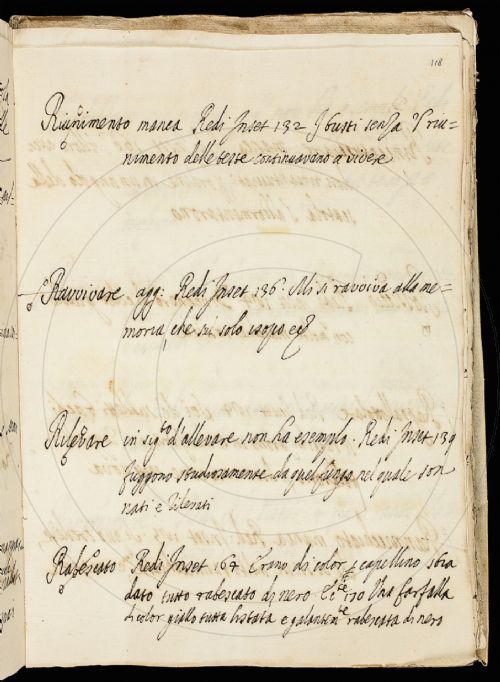 118
Riunimento manca Redi Inset 132 I busti senza 'l riu=
nimento delle teste continuavano a vivere
Ravvivare agg: Redi Inset 136. Mi si ravviva alla me=
moria, che
Rilevare in sig.to d'allevare non ha esempio. Redi Inset 139
fuggono studiosamente da quel fungo nel quale son
nati e rilevati
Rabescato Redi Inset 167 Erano di color capellino sbia
dato tutto rabescato di nero 170 Una farfalla
di color giallo tutta listata e galantem.te rabescata di nero